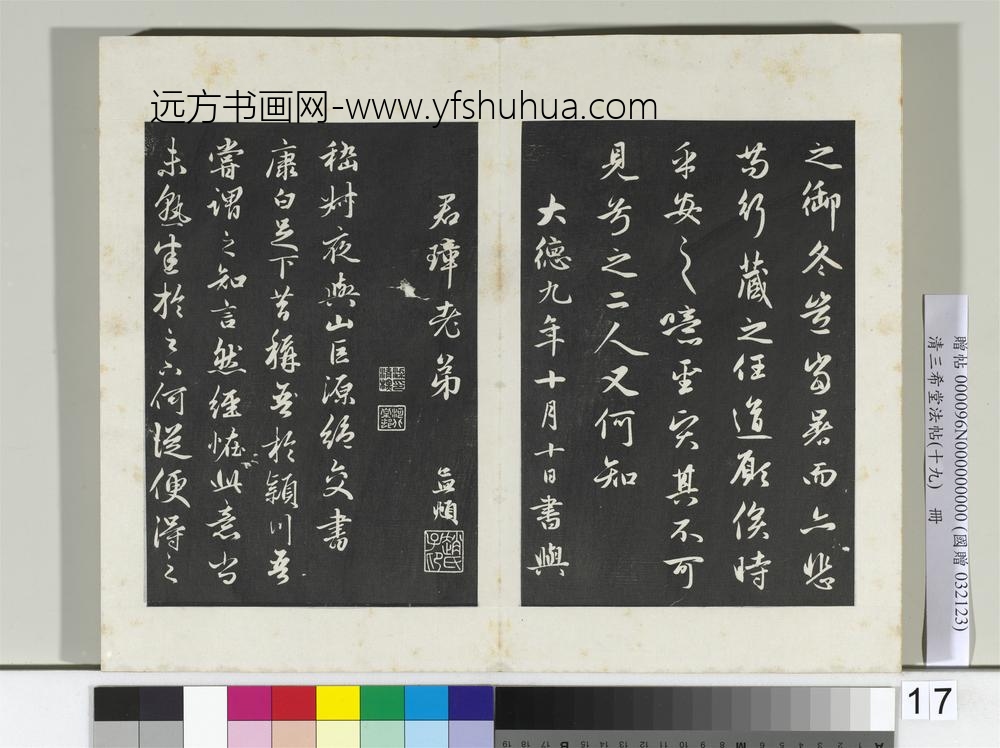 远方书画网-www.yfshuhua.com
之御冬豈當暑而亡悲
苟行藏之任道願俟時
乎安之噫聖賢其不可
見兮之二人又何知
大德九年十月十日書與
君璋老弟 孟頫
趙氏子印
嵇叔夜與山巨源絕交書
康白足下昔稱吾於潁川吾
嘗謂之知言然經恠此意尚
未熟悉於足下何從便得之
贈帖 000096N000000000 (國贈 032123)
清三希堂法帖(十九) 冊
17